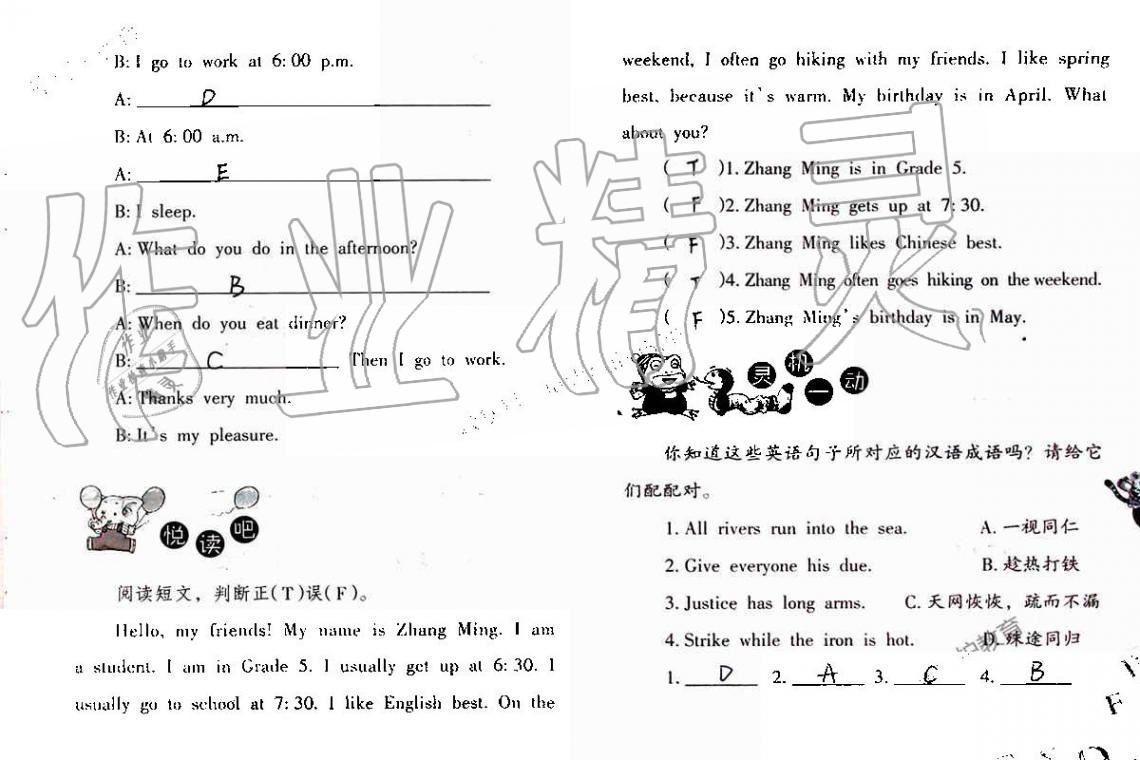 B: I go to work at 6:00 p.m.
A: D
B: At 6:00 a.m.
A: E
B: I sleep.
A: What do you do in the afternoon?
B: B
A: When do you eat dinner?
B: C Then I go to work.
A: Thanks very much.
B: It's my pleasure.
悦读吧
阅读短文，判断正(T)误(F)。
Hello, my friends! My name is Zhang Ming. I am
a student. I am in Grade 5. I usually get up at 6:30. I
usually go to school at 7:30. I like English best. On the
weekend, I often go hiking with my friends. I like spring
best, because it's warm. My birthday is in April. What
about you?
( T )1. Zhang Ming is in Grade 5.
( F )2. Zhang Ming gets up at 7:30.
( F )3. Zhang Ming likes Chinese best.
( T )4. Zhang Ming often goes hiking on the weekend.
( F )5. Zhang Ming's birthday is in May.
灵机一动
你知道这些英语句子所对应的汉语成语吗？请给它
们配配对。
1. All rivers run into the sea. A. 一视同仁
2. Give everyone his due. B. 趁热打铁
3. Justice has long arms. C. 天网恢恢，疏而不漏
4. Strike while the iron is hot. D. 殊途同归
1. D 2. A 3. C 4. B
作业精灵